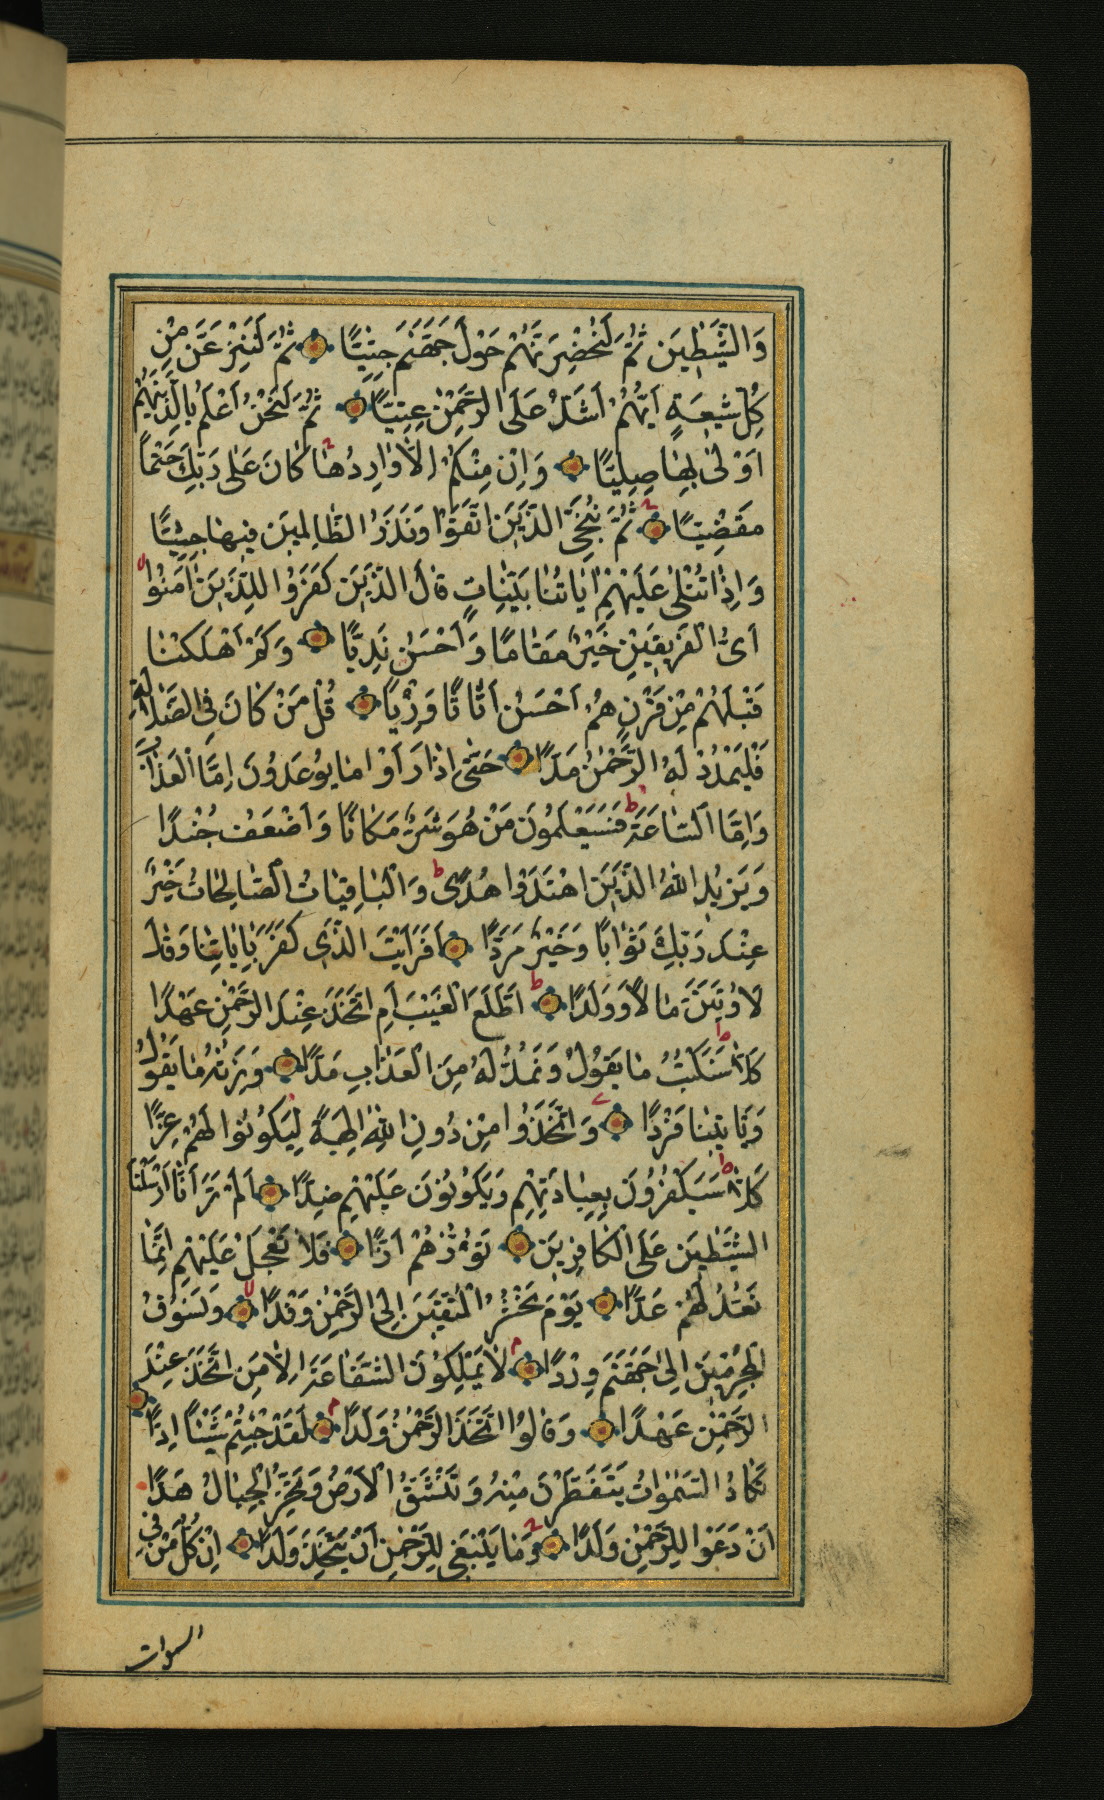 وَالشَّيَٰطِينَ ثُمَّ لَنُحْضِرَنَّهُمْ حَوْلَ جَهَنَّمَ جِثِيًّا ثُمَّ لَنَنْزِعَنَّ مِنْ
كُلِّ شِيعَةٍ اَيُّهُمْ اَشَدُّ عَلَى الرَّحْمٰنِ عِتِيًّا ثُمَّ لَنَحْنُ اَعْلَمُ بِالَّذِينَ هُمْ
اَوْلٰى بِهَا صِلِيًّا وَاِنْ مِنْكُمْ اِلَّا وَارِدُهَا كَانَ عَلٰى رَبِّكَ حَتْمًا
مَقْضِيًّا ثُمَّ نُنَجِّى الَّذِينَ اتَّقَوْا وَنَذَرُ الظَّالِمِينَ فِيهَا جِثِيًّا
وَاِذَا تُتْلٰى عَلَيْهِمْ اٰيَاتُنَا بَيِّنَاتٍ قَالَ الَّذِينَ كَفَرُوا لِلَّذِينَ اٰمَنُوا
اَىُّ الْفَرِيقَيْنِ خَيْرٌ مَقَامًا وَاَحْسَنُ نَدِيًّا وَكَمْ اَهْلَكْنَا
قَبْلَهُمْ مِنْ قَرْنٍ هُمْ اَحْسَنُ اَثَاثًا وَرِءْيًا قُلْ مَنْ كَانَ فِى الضَّلَالَةِ
فَلْيَمْدُدْ لَهُ الرَّحْمٰنُ مَدًّا حَتّٰى اِذَا رَاَوْا مَا يُوعَدُونَ اِمَّا الْعَذَابَ
وَاِمَّا السَّاعَةَ فَسَيَعْلَمُونَ مَنْ هُوَ شَرٌّ مَكَانًا وَاَضْعَفُ جُنْدًا
وَيَزِيدُ اللّٰهُ الَّذِينَ اهْتَدَوْا هُدًى وَالْبَاقِيَاتُ الصَّالِحَاتُ خَيْرٌ
عِنْدَ رَبِّكَ ثَوَابًا وَخَيْرٌ مَرَدًّا اَفَرَاَيْتَ الَّذِى كَفَرَ بِاٰيَاتِنَا وَقَالَ
لَاُوتَيَنَّ مَالًا وَوَلَدًا اَطَّلَعَ الْغَيْبَ اَمِ اتَّخَذَ عِنْدَ الرَّحْمٰنِ عَهْدًا
كَلَّا سَنَكْتُبُ مَا يَقُولُ وَنَمُدُّ لَهُ مِنَ الْعَذَابِ مَدًّا وَنَرِثُهُ مَا يَقُولُ
وَيَاْتِينَا فَرْدًا وَاتَّخَذُوا مِنْ دُونِ اللّٰهِ اٰلِهَةً لِيَكُونُوا لَهُمْ عِزًّا
كَلَّا سَيَكْفُرُونَ بِعِبَادَتِهِمْ وَيَكُونُونَ عَلَيْهِمْ ضِدًّا اَلَمْ تَرَ اَنَّا اَرْسَلْنَا
الشَّيَٰطِينَ عَلَى الْكَافِرِينَ تَؤُزُّهُمْ اَزًّا فَلَا تَعْجَلْ عَلَيْهِمْ اِنَّمَا
نَعُدُّ لَهُمْ عَدًّا يَوْمَ نَحْشُرُ الْمُتَّقِينَ اِلَى الرَّحْمٰنِ وَفْدًا وَنَسُوقُ
الْمُجْرِمِينَ اِلٰى جَهَنَّمَ وِرْدًا لَا يَمْلِكُونَ الشَّفَاعَةَ اِلَّا مَنِ اتَّخَذَ عِنْدَ
الرَّحْمٰنِ عَهْدًا وَقَالُوا اتَّخَذَ الرَّحْمٰنُ وَلَدًا لَقَدْ جِئْتُمْ شَيْئًا اِدًّا
تَكَادُ السَّمٰوَاتُ يَتَفَطَّرْنَ مِنْهُ وَتَنْشَقُّ الْاَرْضُ وَتَخِرُّ الْجِبَالُ هَدًّا
اَنْ دَعَوْا لِلرَّحْمٰنِ وَلَدًا وَمَا يَنْبَغِى لِلرَّحْمٰنِ اَنْ يَتَّخِذَ وَلَدًا اِنْ كُلُّ مَنْ فِى
السموات